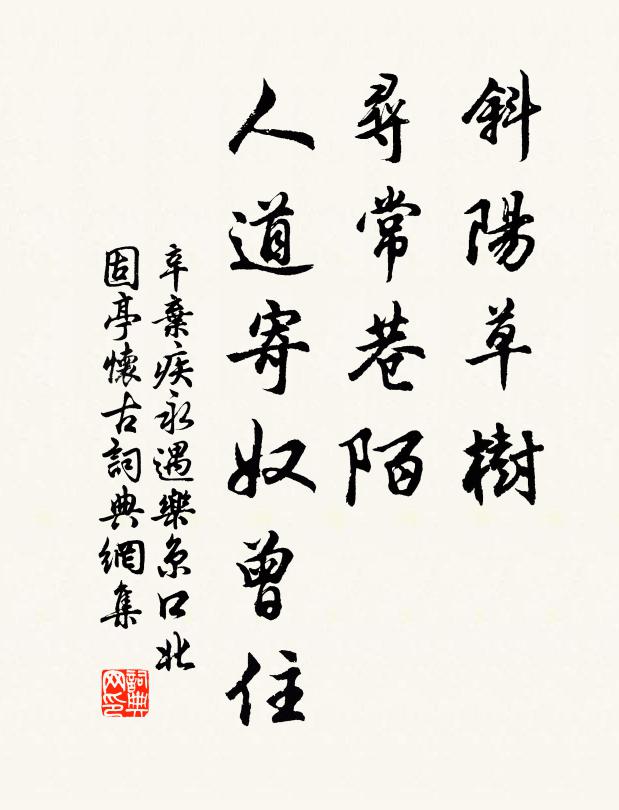 斜陽草樹
尋常巷陌
人道寄奴曾住
辛棄疾永遇樂京口北
固亭懷古詞典網集
詞典网印